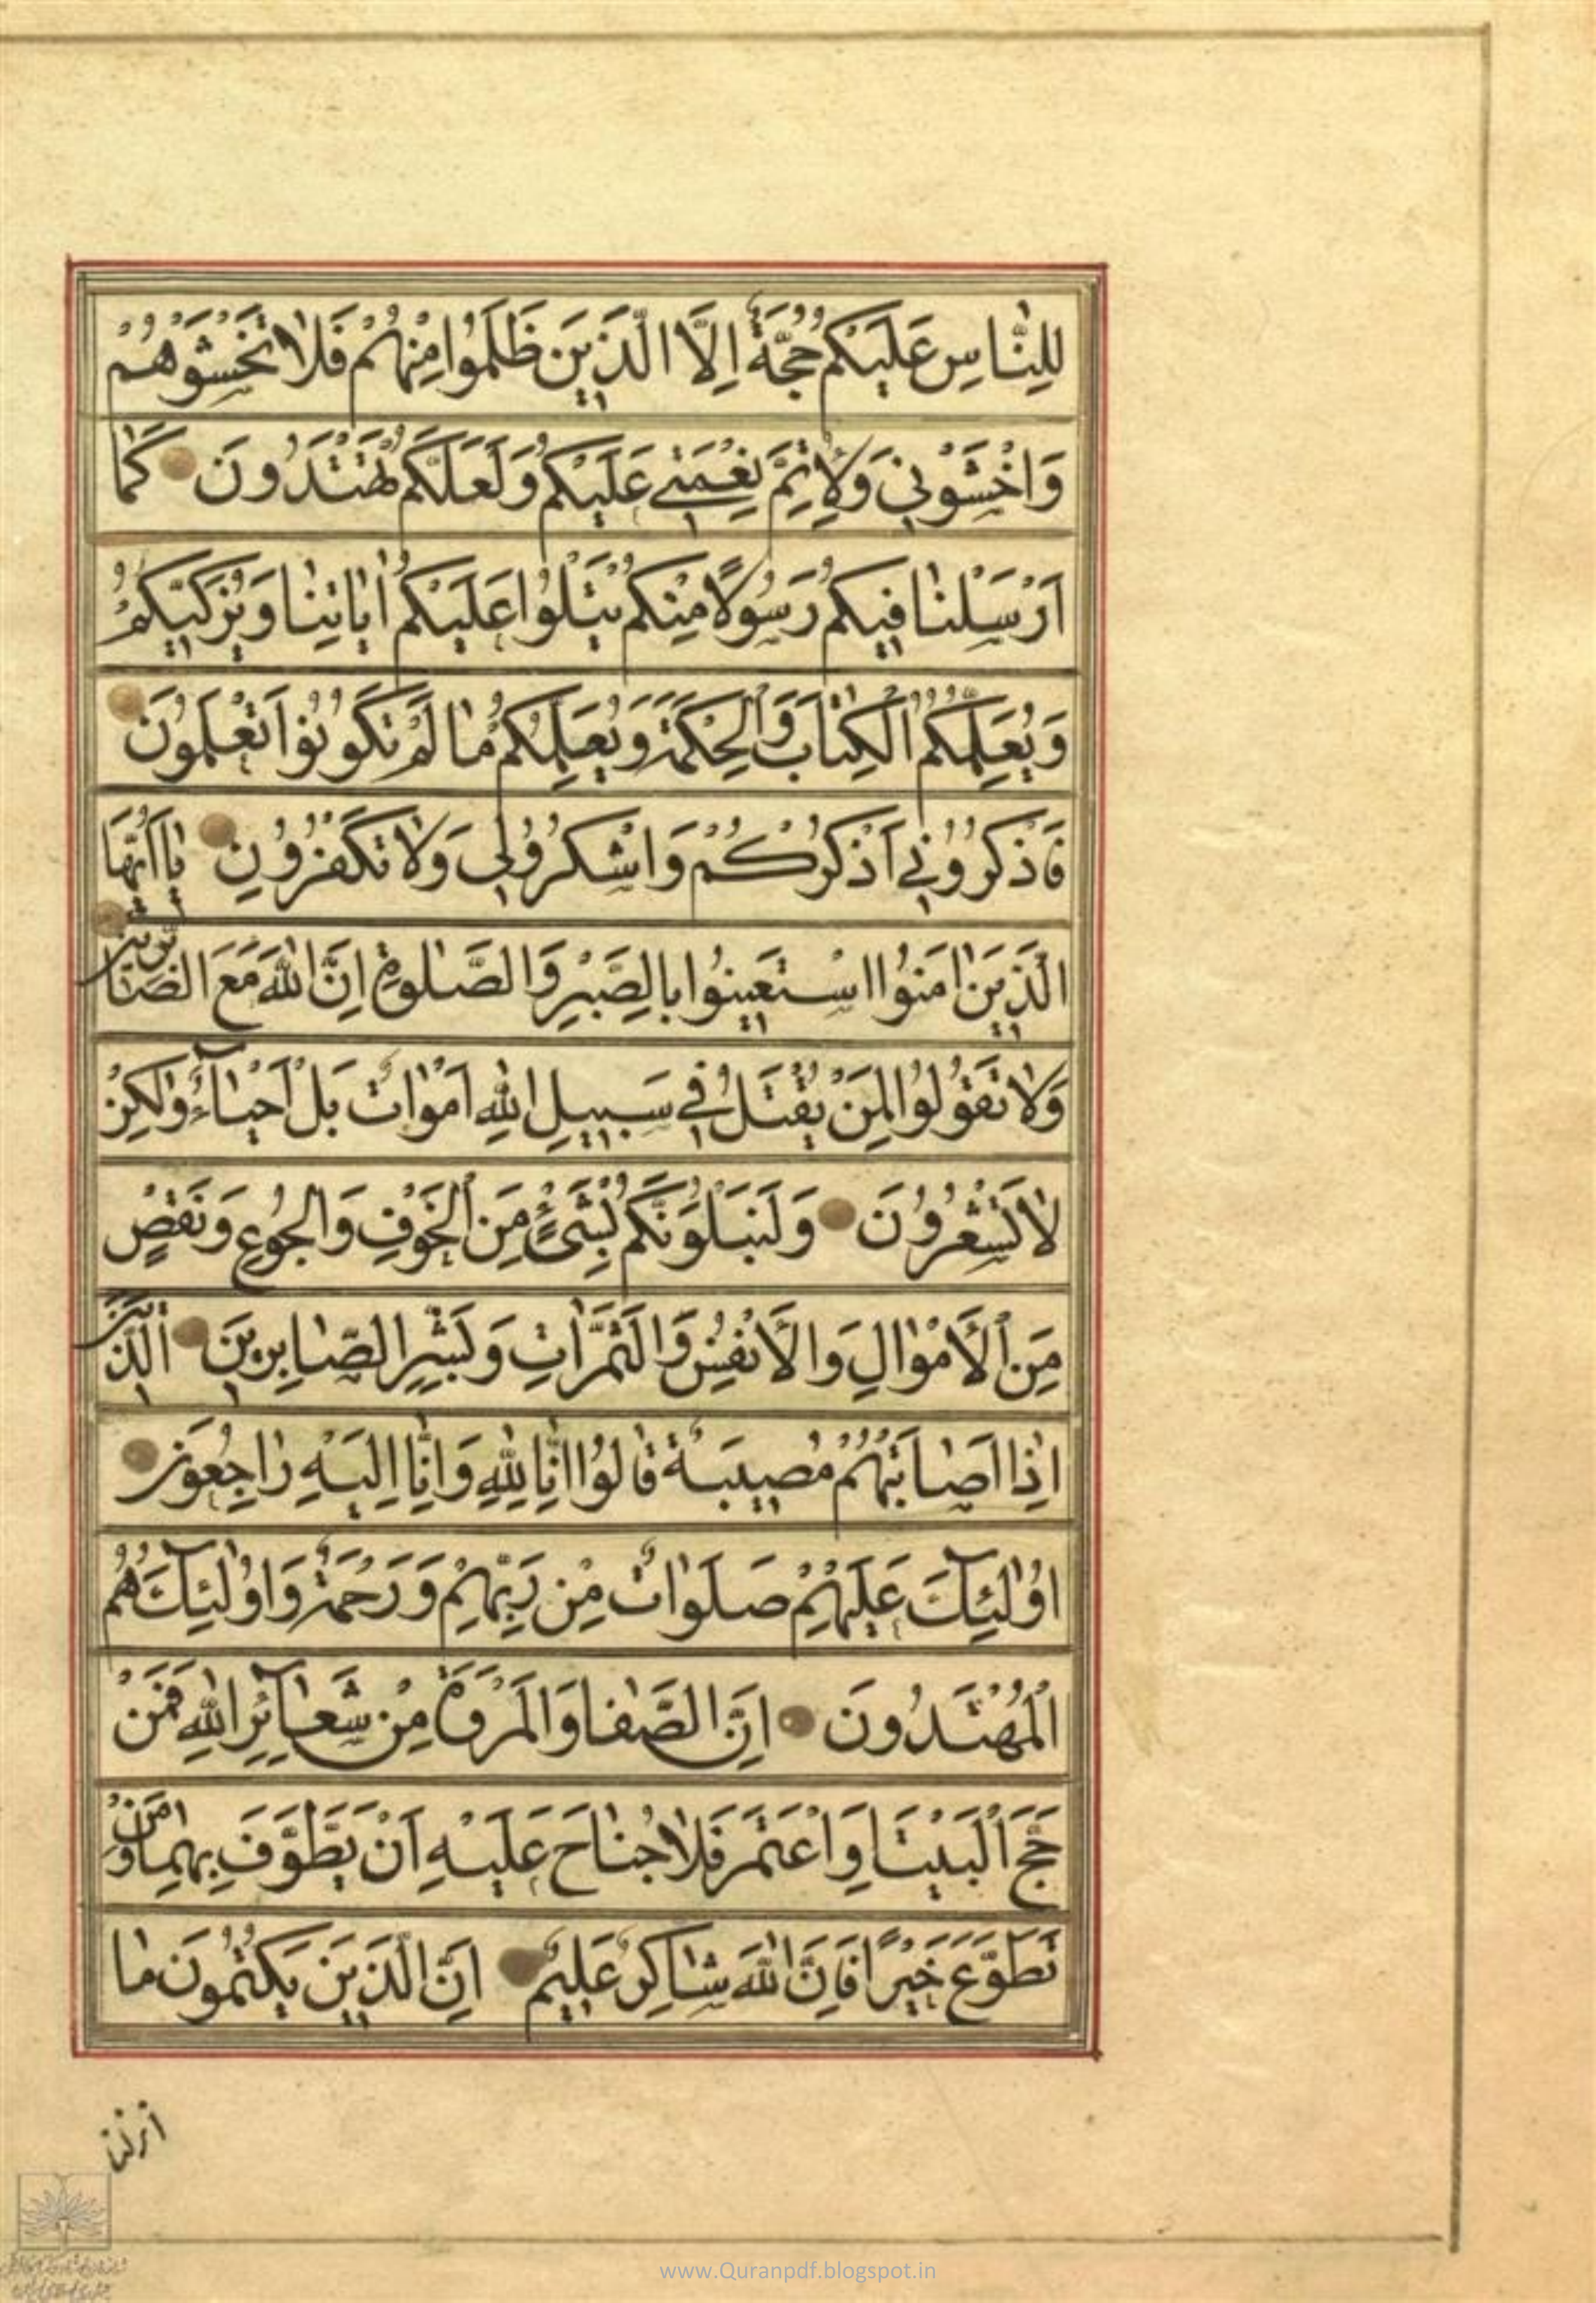 لِلنّٰاسِ عَلَيْكُمْ حُجَّةٌ اِلَّا الَّذينَ ظَلَمُوا مِنْهُمْ فَلاٰ تَخْشَوْهُمْ
وَاخْشَوْنى وَلِاُتِمَّ نِعْمَتى عَلَيْكُمْ وَلَعَلَّكُمْ تَهْتَدُونَ كَمٰا
اَرْسَلْنٰا فيكُمْ رَسُولاً مِنْكُمْ يَتْلُوا عَلَيْكُمْ اٰيٰاتِنٰا وَيُزَكّيكُمْ
وَيُعَلِّمُكُمُ الْكِتٰابَ وَالْحِكْمَةَ وَيُعَلِّمُكُمْ مٰا لَمْ تَكُونُوا تَعْلَمُونَ
فَاذْكُرُونى اَذْكُرْكُمْ وَاشْكُرُوا لى وَلاٰ تَكْفُرُونِ يٰا اَيُّهَا
الَّذينَ اٰمَنُوا اسْتَعينُوا بِالصَّبْرِ وَالصَّلٰوةِ اِنَّ اللّٰهَ مَعَ الصّٰابِرينَ
وَلاٰ تَقُولُوا لِمَنْ يُقْتَلُ فى سَبيلِ اللّٰهِ اَمْوٰاتٌ بَلْ اَحْيٰآءٌ وَلٰكِنْ
لاٰ تَشْعُرُونَ وَلَنَبْلُوَنَّكُمْ بِشَىْءٍ مِنَ الْخَوْفِ وَالْجُوعِ وَنَقْصٍ
مِنَ الْاَمْوٰالِ وَالْاَنْفُسِ وَالثَّمَرٰاتِ وَبَشِّرِ الصّٰابِرينَ اَلَّذينَ
اِذٰا اَصٰابَتْهُمْ مُصيبَةٌ قٰالُوا اِنّٰا لِلّٰهِ وَاِنّٰا اِلَيْهِ رٰاجِعُونَ
اُولٰئِكَ عَلَيْهِمْ صَلَوٰاتٌ مِنْ رَبِّهِمْ وَرَحْمَةٌ وَاُولٰئِكَ هُمُ
الْمُهْتَدُونَ اِنَّ الصَّفٰا وَالْمَرْوَةَ مِنْ شَعٰآئِرِ اللّٰهِ فَمَنْ
حَجَّ الْبَيْتَ اَوِ اعْتَمَرَ فَلاٰ جُنٰاحَ عَلَيْهِ اَنْ يَطَّوَّفَ بِهِمٰا وَمَنْ
تَطَوَّعَ خَيْراً فَاِنَّ اللّٰهَ شٰاكِرٌ عَليمٌ اِنَّ الَّذينَ يَكْتُمُونَ مٰا
انزلنا
www.Quranpdf.blogspot.in